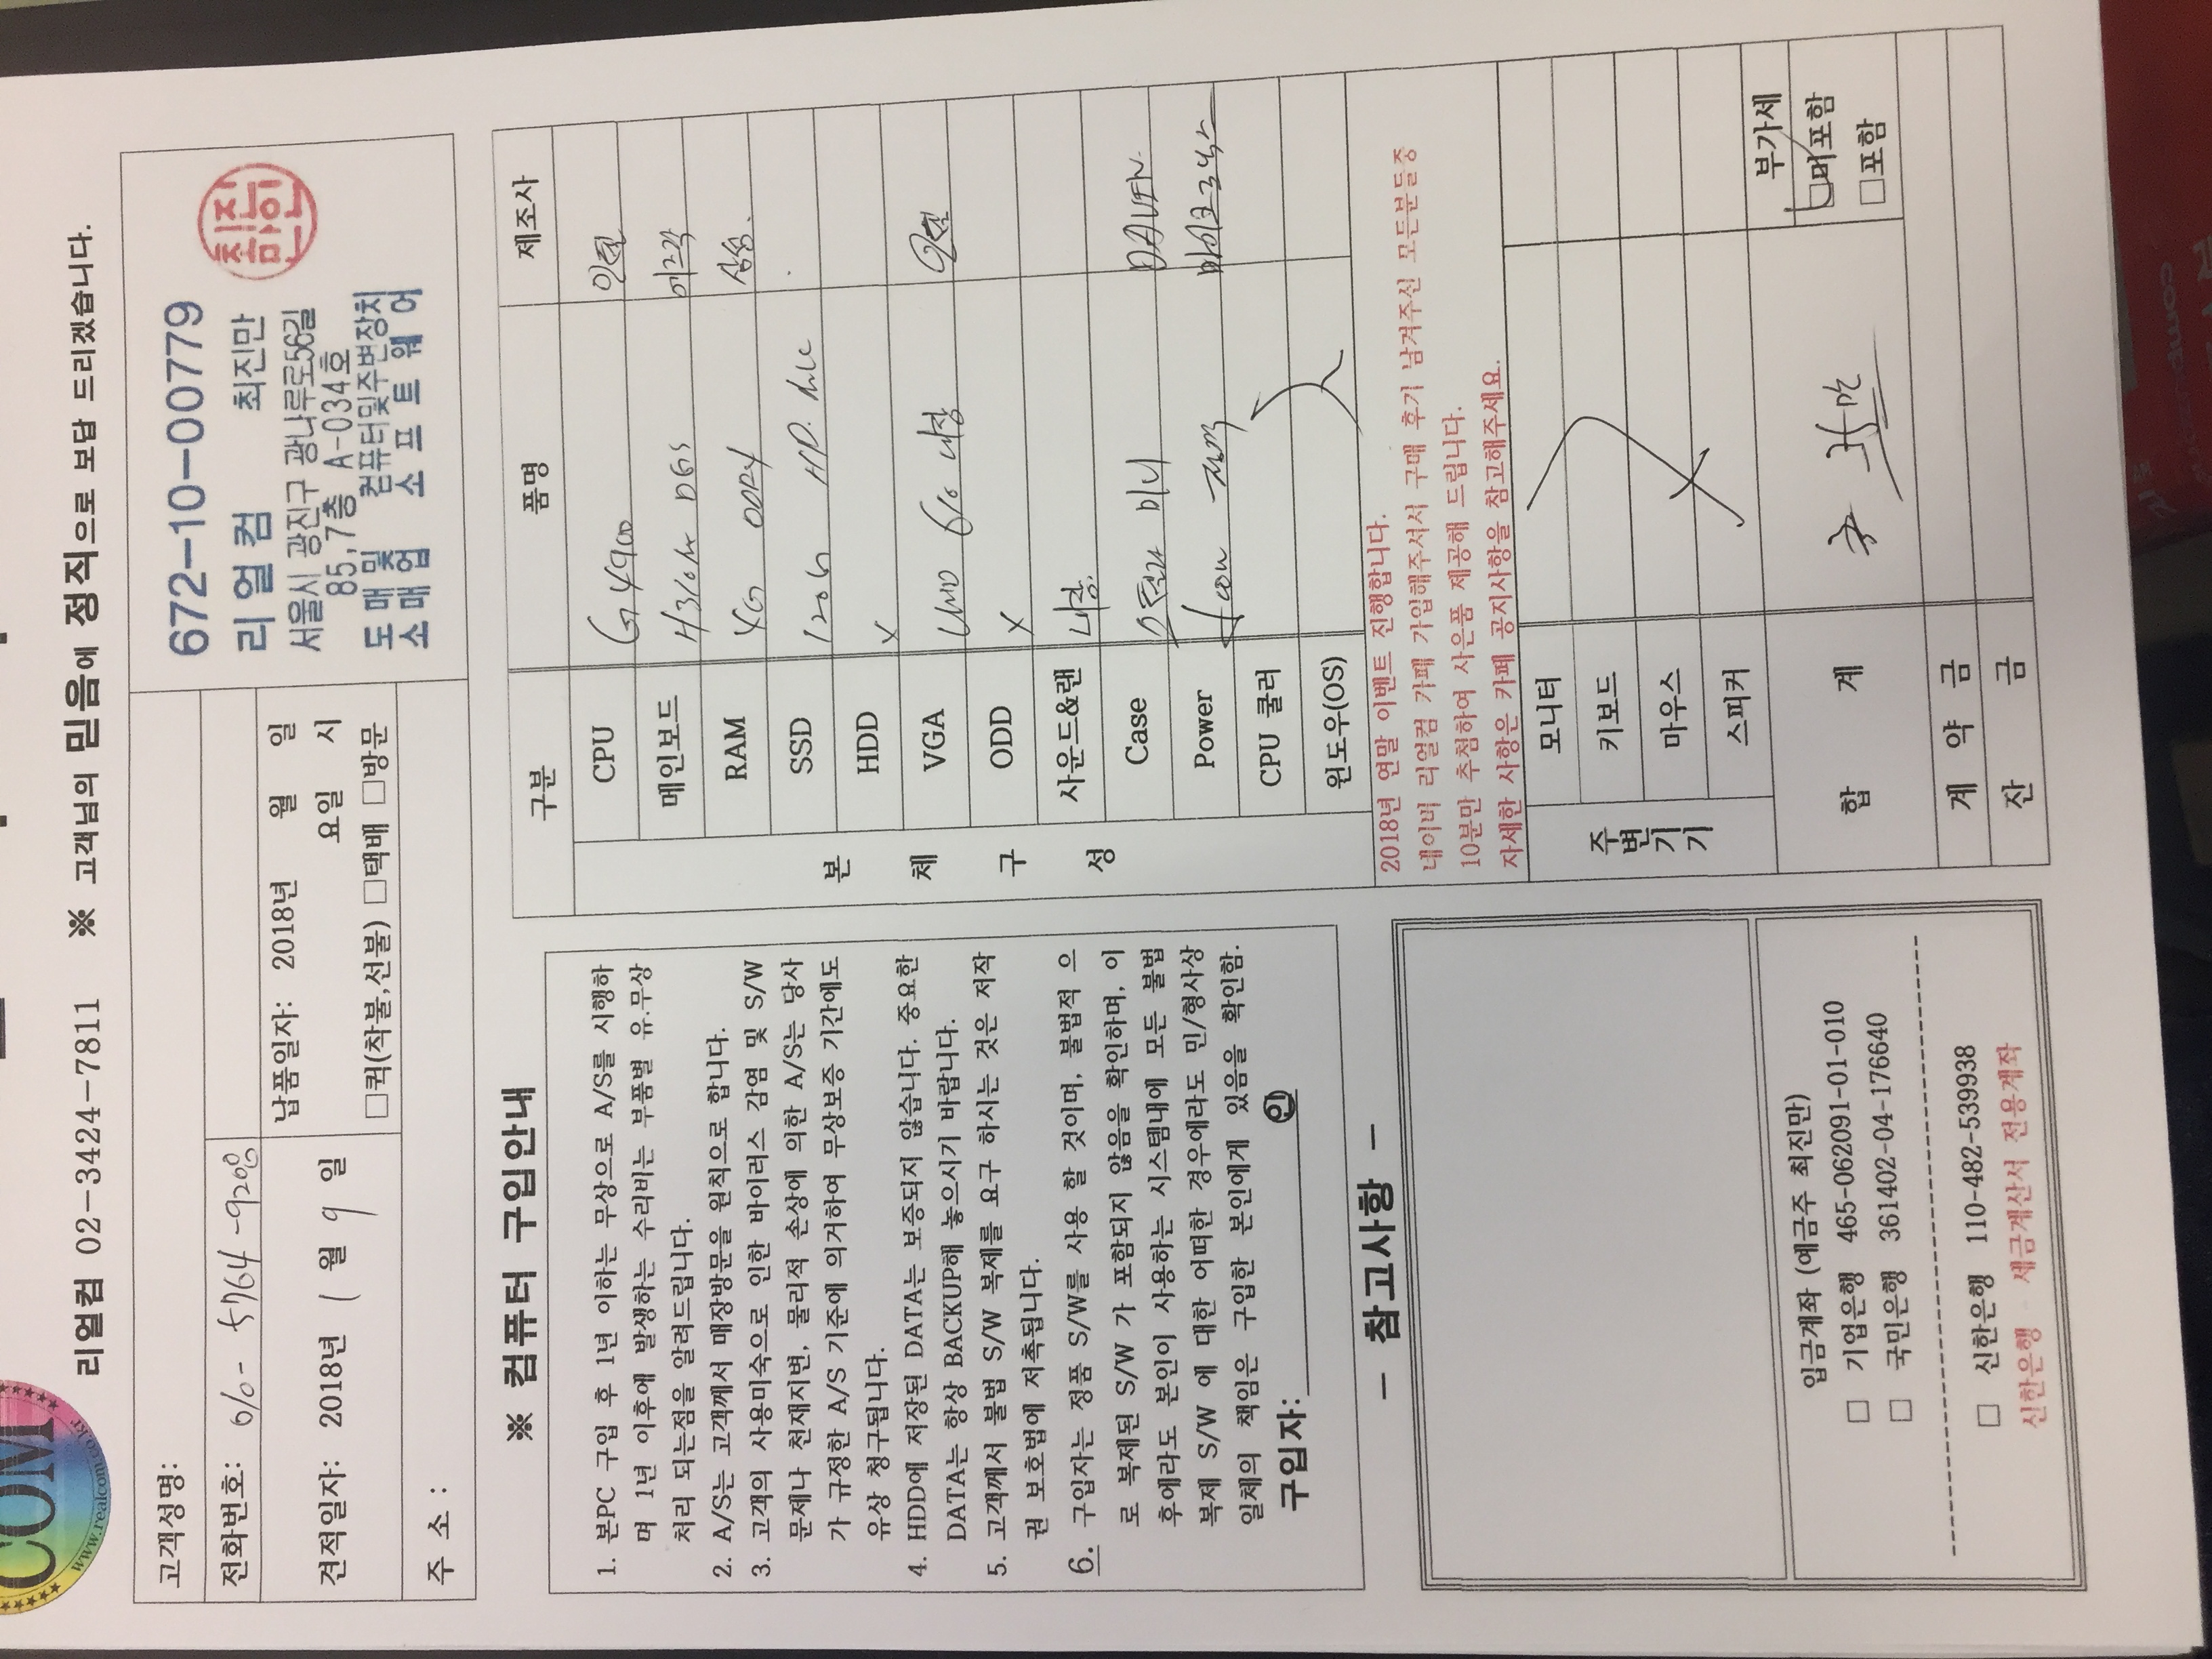 COM
www.realcom.co.kr
리얼컴 02-3424-7811 ※ 고객님의 믿음에 정직으로 보답 드리겠습니다.
고객성명:
전화번호: 010- 5764 -9208
견적일자: 2018년 1 월 9 일
납품일자: 2018년 월 일
요일 시
□퀵(착불,선불) □택배 □방문
주 소 :
672-10-00779
리얼컴 최진만
서울시 광진구 광나루로56길
85,7층 A-034호
도매및 컴퓨터및주변장치
소매업 소프트웨어
※ 컴퓨터 구입안내
1. 본PC 구입 후 1년 이하는 무상으로 A/S를 시행하
며 1년 이후에 발생하는 수리비는 부품별 유.무상
처리 되는점을 알려드립니다.
2. A/S는 고객께서 매장방문을 원칙으로 합니다.
3. 고객의 사용미숙으로 인한 바이러스 감염 및 S/W
문제나 천재지변, 물리적 손상에 의한 A/S는 당사
가 규정한 A/S 기준에 의거하여 무상보증 기간에도
유상 청구됩니다.
4. HDD에 저장된 DATA는 보증되지 않습니다. 중요한
DATA는 항상 BACKUP해 놓으시기 바랍니다.
5. 고객께서 불법 S/W 복제를 요구 하시는 것은 저작
권 보호법에 저촉됩니다.
6. 구입자는 정품 S/W를 사용 할 것이며, 불법적 으
로 복제된 S/W 가 포함되지 않음을 확인하며, 이
후에라도 본인이 사용하는 시스템내에 모든 불법
복제 S/W 에 대한 어떠한 경우에라도 민/형사상
일체의 책임은 구입한 본인에게 있음을 확인함.
구입자: 인
- 참고사항 -
입금계좌 (예금주 최진만)
□ 기업은행 465-062091-01-010
□ 국민은행 361402-04-176640
□ 신한은행 110-482-539938
신한은행 세금계산서 전용계좌
구분 품명 제조사
본체구성
CPU G4900 인텔
메인보드 H310M DGS
RAM 4G DDR4 삼성
SSD 120G
HDD X
VGA UHD 610 내장 인텔
ODD X
사운드&랜 내장
Case 미니 DAVEN
Power 400W 정격 마이크로닉스
CPU 쿨러
윈도우(OS)
2018년 연말 이벤트 진행합니다.
네이버 리얼컴 카페 가입해주셔서 구매 후기 남겨주신 모든분들중
10분만 추첨하여 사은품 제공해 드립니다.
자세한 사항은 카페 공지사항을 참고해주세요.
주변기기
모니터
키보드
마우스
스피커
합 계
부가세
□미포함
□포함
계 약 금
잔 금